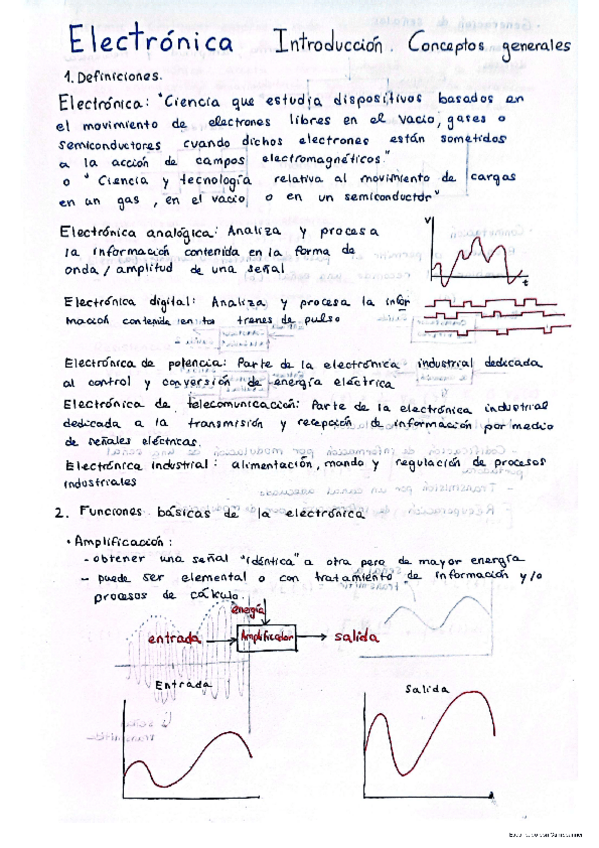 Electrónica Introducción. Conceptos generales
1. Definiciones.
Electrónica: "Ciencia que estudia dispositivos basados en
el movimiento de electrones libres en el vacío, gases o
semiconductores cuando dichos electrones están sometidos
a la acción de campos electromagnéticos."
o "Ciencia y tecnología relativa al movimiento de cargas
en un gas, en el vacío o en un semiconductor"
Electrónica analógica: Analiza y procesa
la información contenida en la forma de
onda / amplitud de una señal
V
t
Electrónica digital: Analiza y procesa la infor
mación contenida en los trenes de pulso
Electrónica de potencia: Parte de la electrónica industrial dedicada
al control y conversión de energía eléctrica
Electrónica de telecomunicación: Parte de la electrónica industrial
dedicada a la transmisión y recepción de información por medio
de señales eléctricas.
Electrónica industrial: alimentación, mando y regulación de procesos
industriales
2. Funciones básicas de la electrónica
• Amplificación:
- obtener una señal "idéntica" a otra pero de mayor energía
- puede ser elemental o con tratamiento de información y/o
procesos de cálculo
energía
entrada Amplificador salida
Entrada
Salida